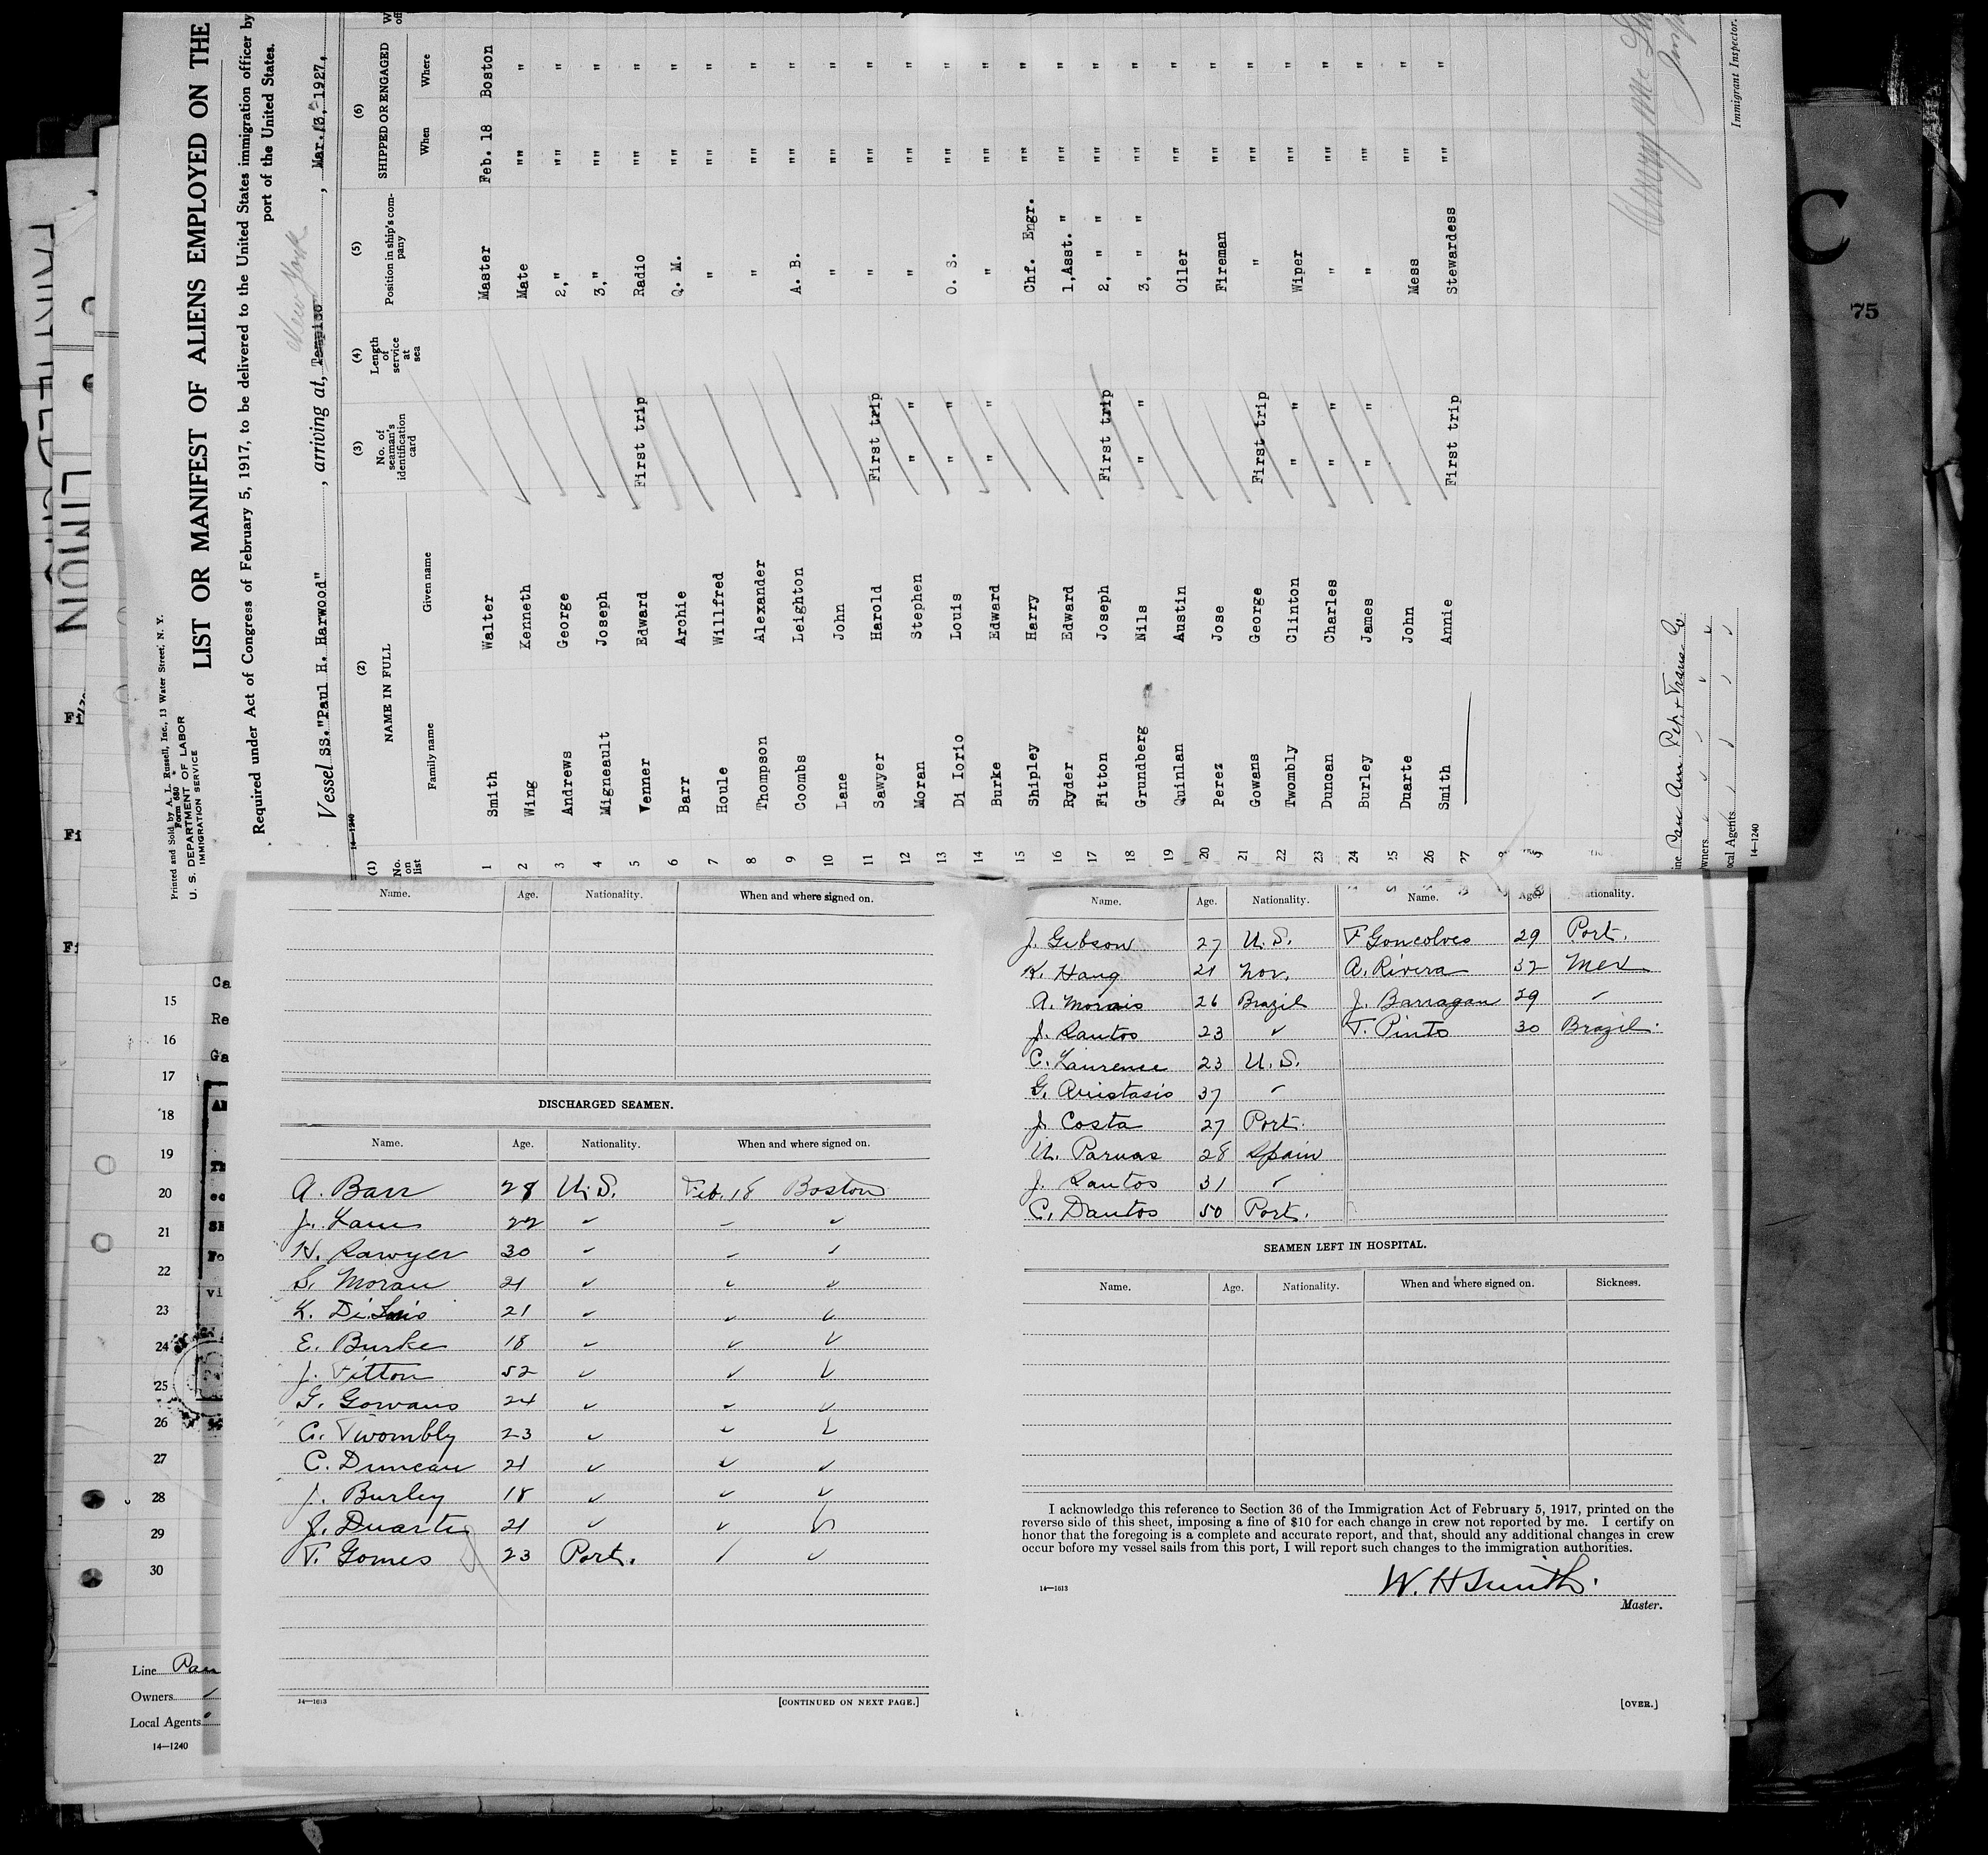 Printed and Sold by A. L. Russell, Inc., 13 Water Street, N. Y.
Form 680
U. S. DEPARTMENT OF LABOR
IMMIGRATION SERVICE
LIST OR MANIFEST OF ALIENS EMPLOYED ON THE
Required under Act of Congress of February 5, 1917, to be delivered to the United States immigration officer by
port of the United States.
Vessel SS. "Paul H. Harwood", arriving at, Tampico New York, Mar. 13, 1927,
14—1240
(1) (2) (3) (4) (5) (6)
No. on list NAME IN FULL No. of seaman's identification card Length of service at sea Position in ship's company SHIPPED OR ENGAGED
Family name Given name When Where
1 Smith Walter Master Feb. 18 Boston
2 Wing Kenneth Mate "" "
3 Andrews George 2," "" "
4 Migneault Joseph 3," "" "
5 Venner Edward First trip Radio "" "
6 Barr Archie Q. M. "" "
7 Houle Willfred " "" "
8 Thompson Alexander " "" "
9 Coombs Leighton A. B. "" "
10 Lane John " "" "
11 Sawyer Harold First trip " "" "
12 Moran Stephen " " " "" "
13 Di Iorio Louis " " O. S. "" "
14 Burke Edward " " " "" "
15 Shipley Harry Chf. Engr. "" "
16 Ryder Edward 1,Asst. " "" "
17 Fitton Joseph First trip 2, " " "" "
18 Grundberg Nils " " 3, " " "" "
19 Quinlan Austin Oiler "" "
20 Perez Jose Fireman "" "
21 Gowans George First trip " "" "
22 Twombly Clinton " " Wiper "" "
23 Duncan Charles " " " "" "
24 Burley James " " " "" "
25 Duarte John Mess "" "
26 Smith Annie First trip Stewardess "" "
27
Line Pan Am. Pet. & Trans. Co
Owners
Local Agents
14—1240
Immigrant Inspector.
C
75
Name. Age. Nationality. When and where signed on.
DISCHARGED SEAMEN.
Name. Age. Nationality. When and where signed on.
A. Barr 28 U.S. Feb. 18 Boston
J. Lane 22 " " "
H. Sawyer 30 " " "
S. Moran 21 " " "
L. Di 21 " " "
E. Burke 18 " " "
J. Fitton 52 " " "
G. Gowans 24 " " "
C. Twombly 23 " " "
C. Duncan 21 " " "
J. Burley 18 " " "
J. Duarte 21 " " "
T. Gomes 23 Port. " "
14—1613 [CONTINUED ON NEXT PAGE.]
Name. Age. Nationality. Name. Age. Nationality.
J. Gibson 27 U.S. F Goncolves 29 Port.
K. Haug 21 Nor. A. Rivera 32 Mex
A. Morais 26 Brazil J. Barragan 29 "
J. Santos 23 " T. Pinto 30 Brazil.
C. Laurence 23 U.S.
G. Anistasio 37 "
J. Costa 27 Port.
28 Spain
J. Santos 31 "
C. Dantos 50 Port.
SEAMEN LEFT IN HOSPITAL.
Name. Age. Nationality. When and where signed on. Sickness.
I acknowledge this reference to Section 36 of the Immigration Act of February 5, 1917, printed on the
reverse side of this sheet, imposing a fine of $10 for each change in crew not reported by me. I certify on
honor that the foregoing is a complete and accurate report, and that, should any additional changes in crew
occur before my vessel sails from this port, I will report such changes to the immigration authorities.
14—1613
W. H Smith.
Master.
[OVER.]
Fi
Fi
Fi
Ca
Re
Ga
15
16
17
18
19
20
21
22
23
24
25
26
27
28
29
30
Line Pan
Owners
Local Agents
14—1240